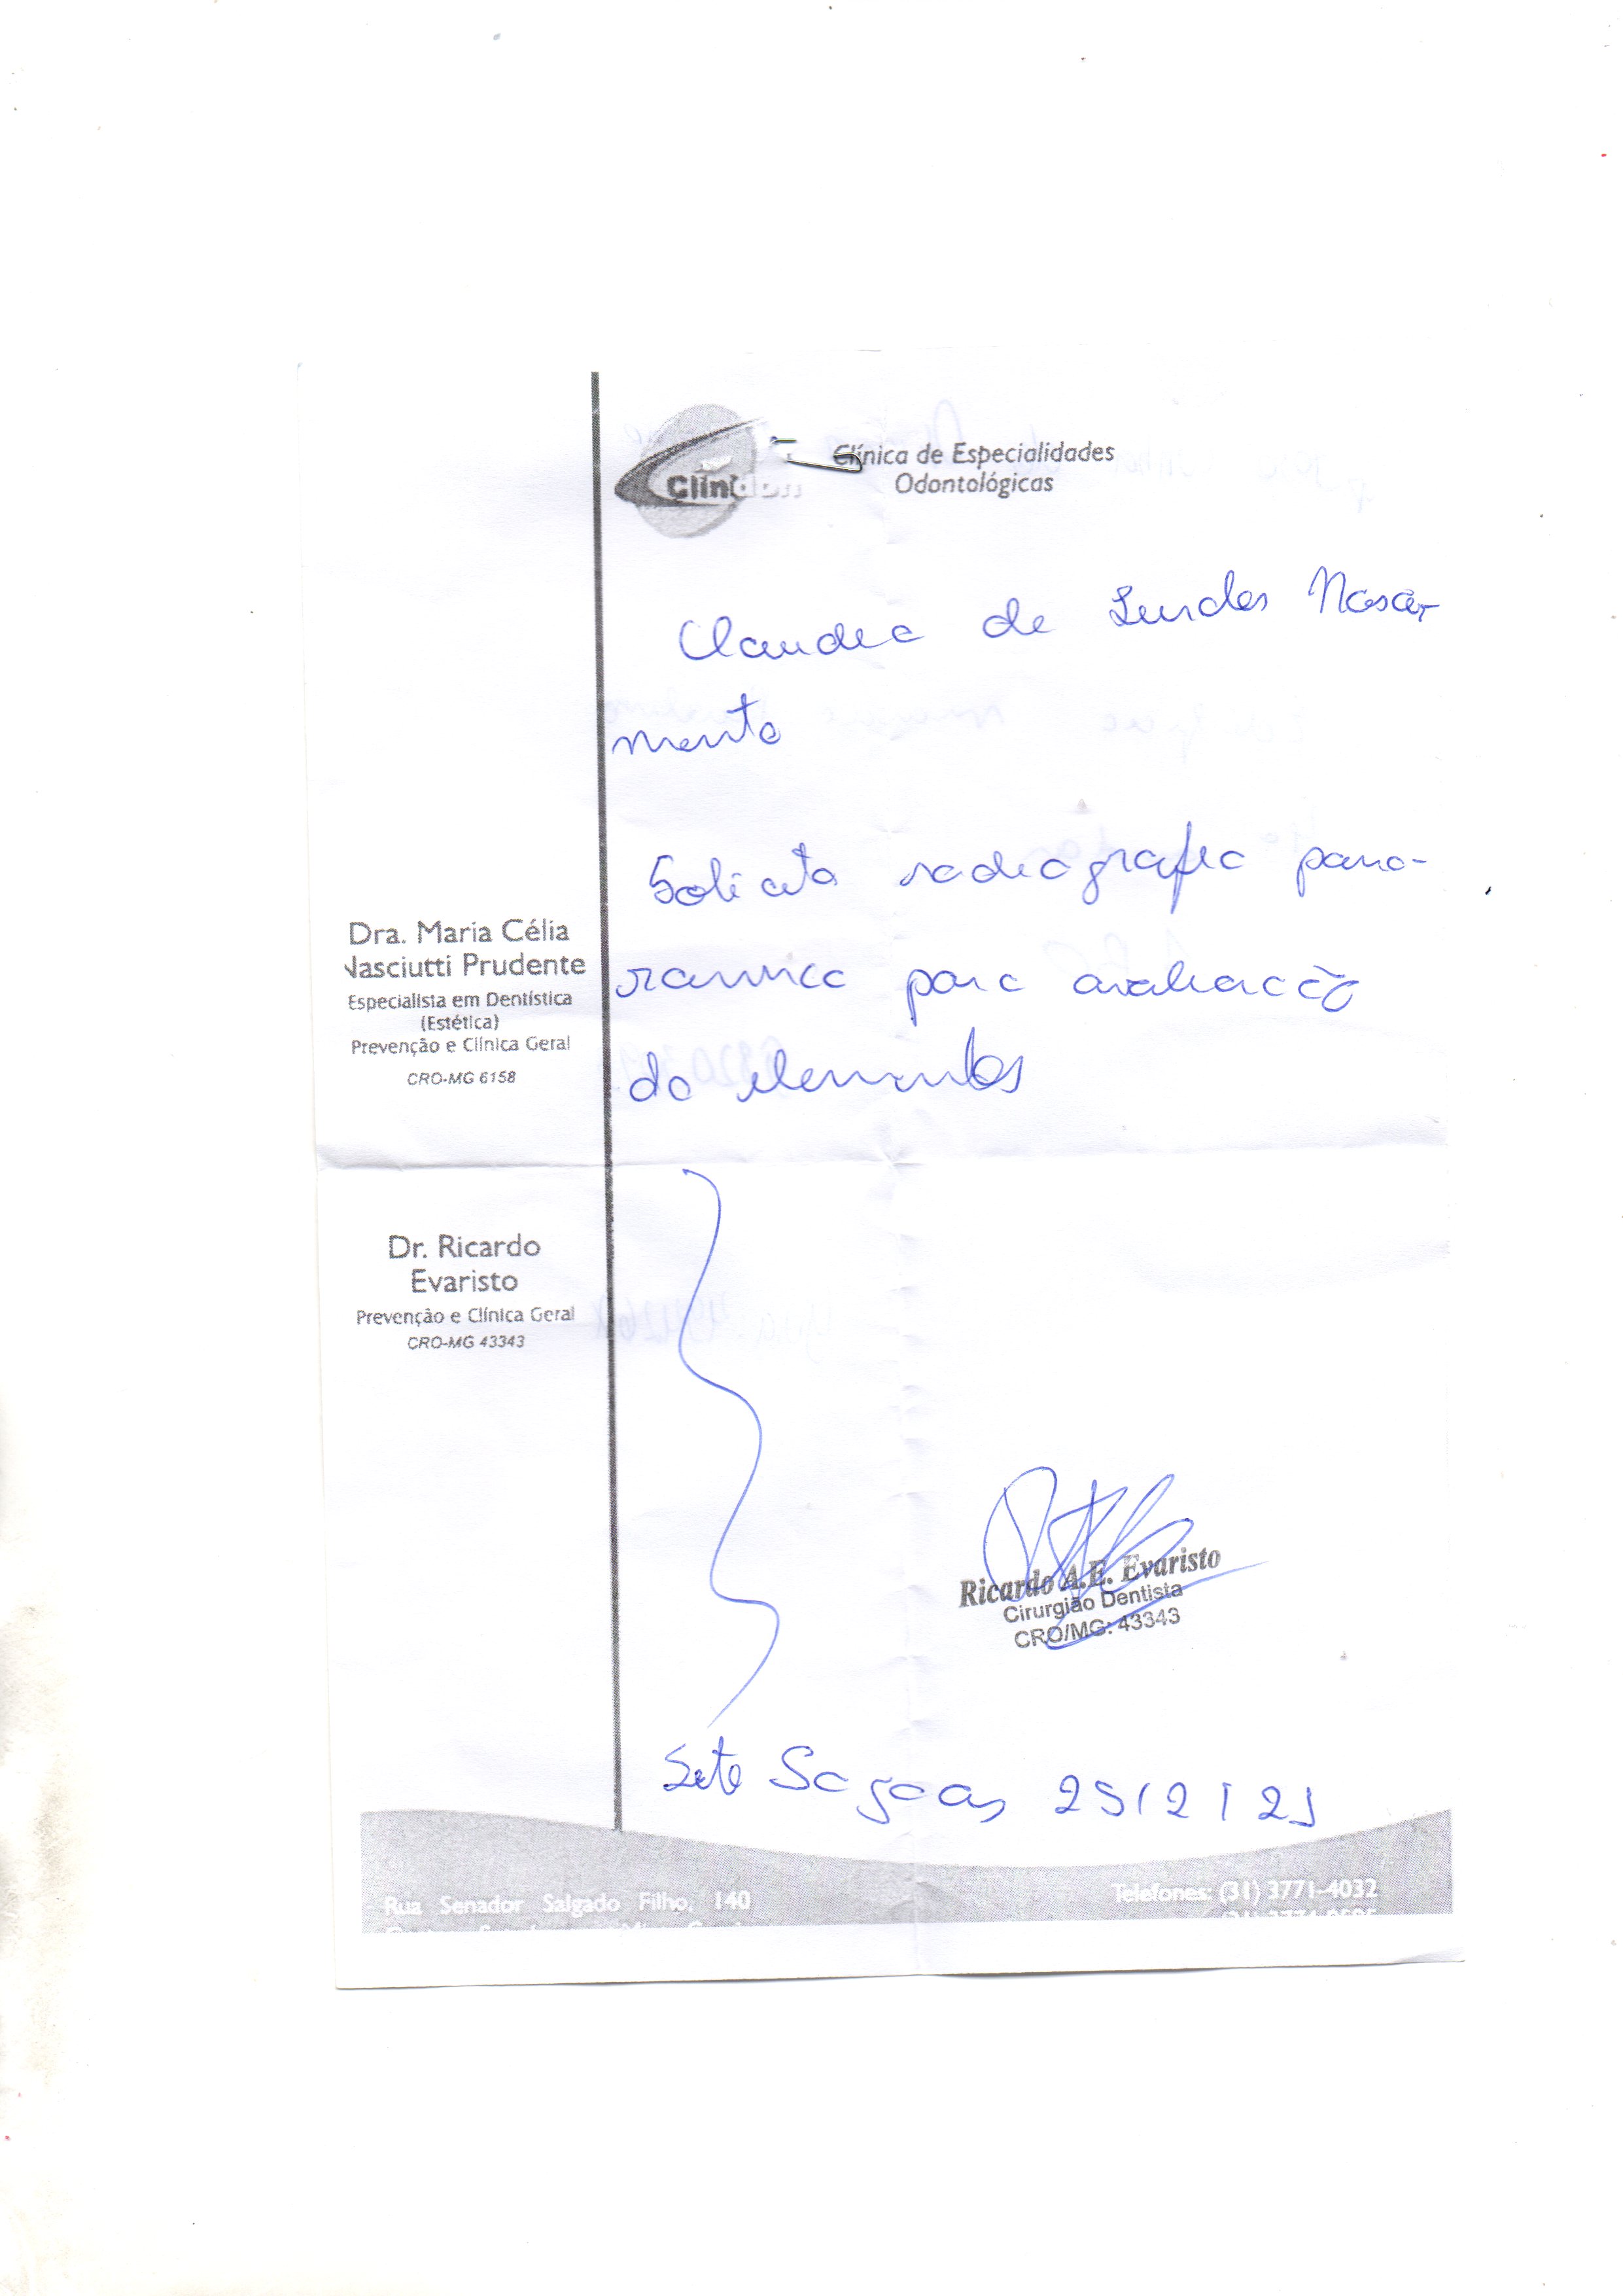 Clínica de Especialidades
Odontológicas
Claudia de Lurdes Nasci-
mento
Solicito radiografia pano-
ramica para avaliação
do elementos
Dra. Maria Célia
Nasciutti Prudente
Especialista em Dentística
(Estética)
Prevenção e Clínica Geral
CRO-MG 6158
Dr. Ricardo
Evaristo
Prevenção e Clínica Geral
CRO-MG 43343
Ricardo A.E. Evaristo
Cirurgião Dentista
CRO/MG: 43343
Sete Lagoas
Rua Senador Salgado Filho, 140
Telefones: (31) 3771-4032